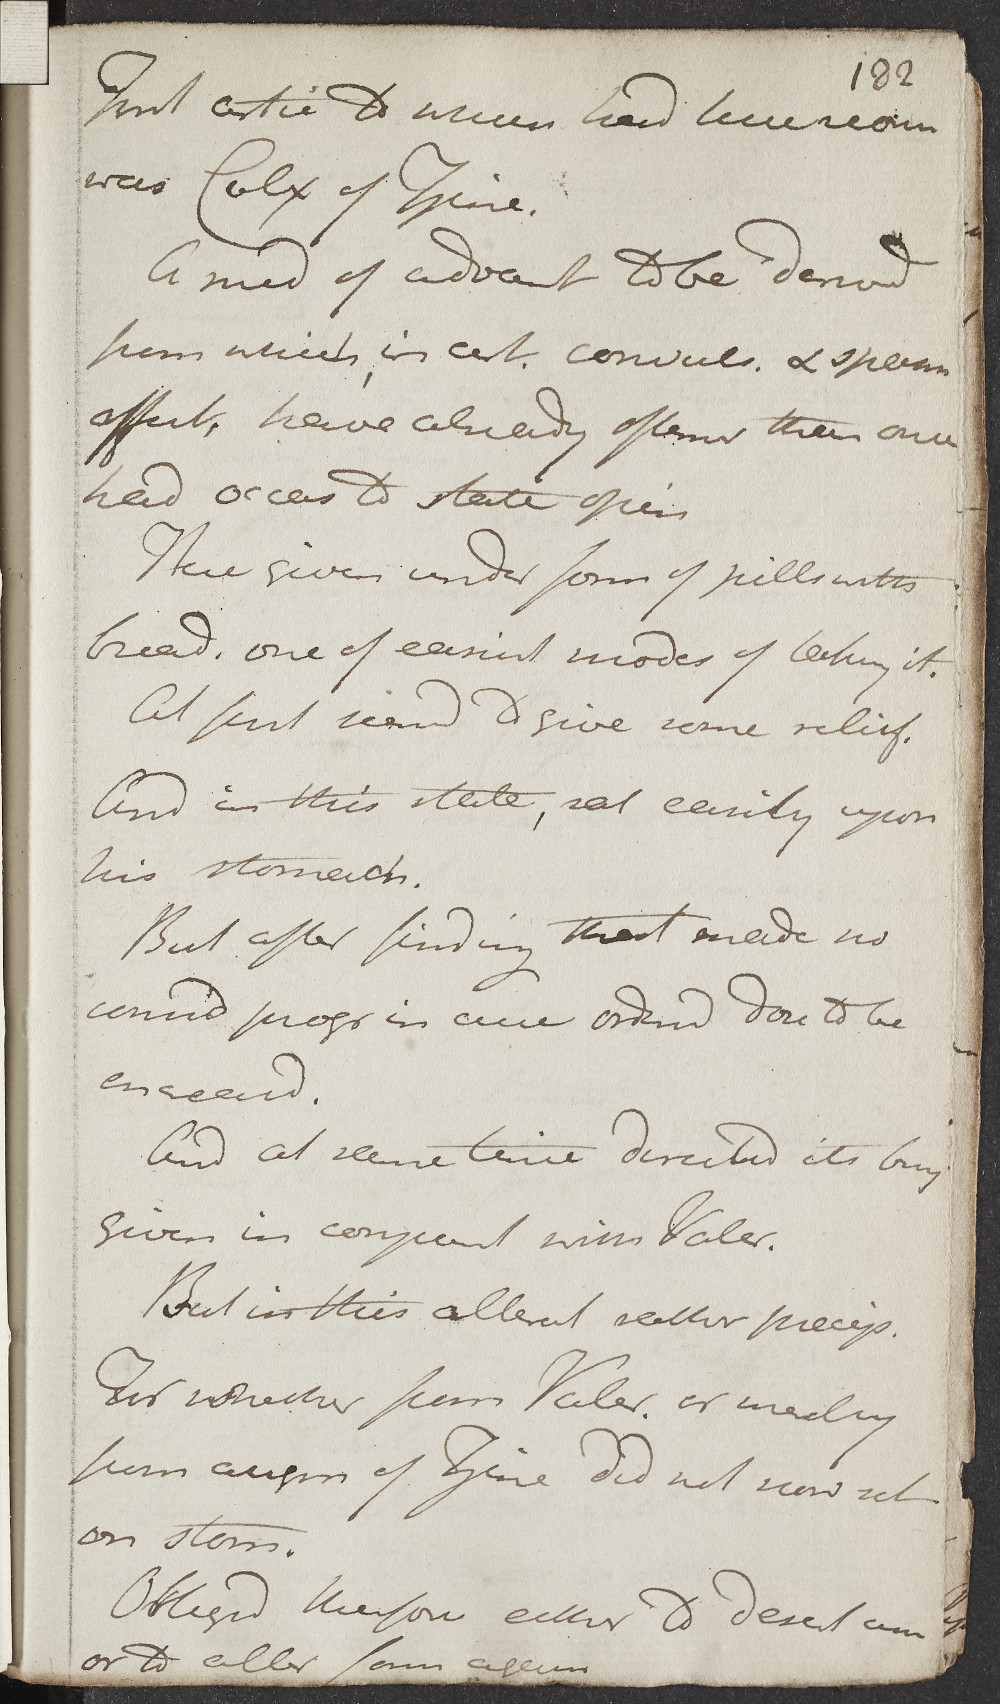 182
First artic to which had here recours
was Calx of Zinc.
A med of advant to be deriv'd
from which, in cert. convuls. & spasm
affect, have already oftener than once
had occas to state opin
This given under form of pills with
bread. one of easiest modes of taking it.
At first seem'd to give some relief.
And in this state, sat easily upon
his stomach.
But after finding that made no
consid progr in cure order'd dose to be
increas'd.
And at same time directed its being
given in conjunct with Valer.
But in this alterat rather precip.
For whether from Valer. or merely
from augm of Zinc did not now sit
on stom.
Oblig'd therefore either to desert
or to alter form again